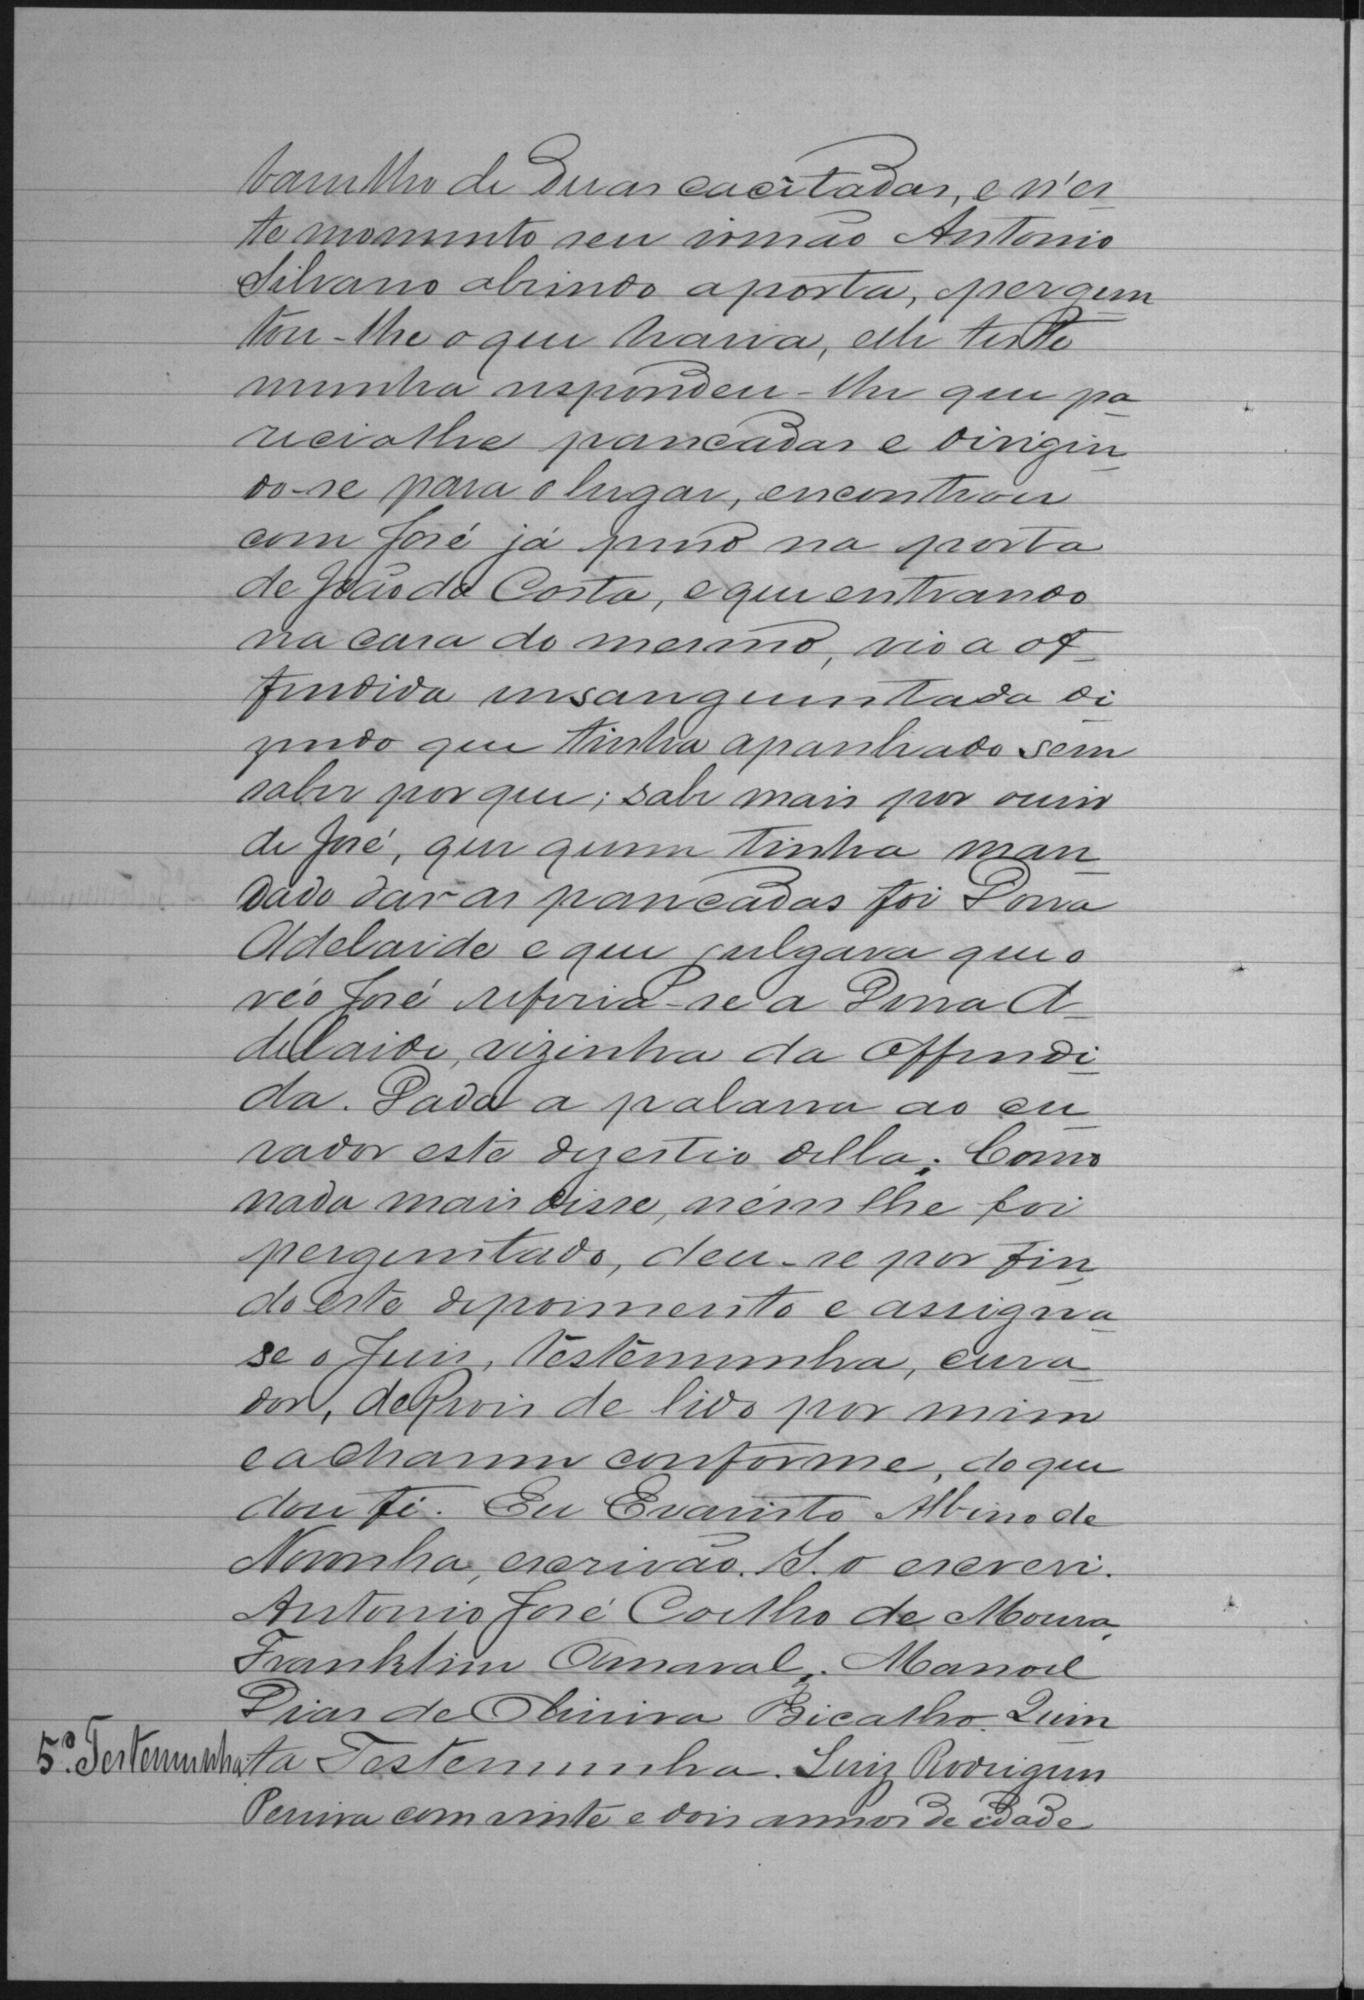 barulho de duas cacetadas, e n'es
te momento seu irmão Antonio
Silvano abrindo a porta, pergun
tou-lhe o que havia, elle teste
munha respondeu-lhe que pa
recia lhe pancadas e dirigin
do-se para o lugar, encontrou
com José já preso na porta
de João da Costa, e que entrando
na casa do mesmo, vio a of
fendida ensanguentada di
zendo que tinha apanhado sem
saber por que; sabe mais por ouvir
de José, que quem tinha man
dado dar as pancadas foi Dona
Adelaide e que julgava que o
réo José referia-se a Dona A
delaide, vizinha da offendi
da. Dada a palavra ao cu
rador este dezestio della. Como
nada mais disse, nem lhe foi
perguntado, deu-se por fin
do este depoimento e assigna
se o Juiz, testemunha, cura
dor, depois de lido por mim
e acharem conforme, do que
dou fé. Eu Evaristo Albino de
Noronha, escrivão. I. o escrevi.
Antonio José Coelho de Moura.
Franklim Amaral. Manoel
Dias de Oliveira Bicalho. Quin
5ª Testemunha. ta Testemunha. Luiz Rodrigues
Pereira com vinte e dois annos de idade